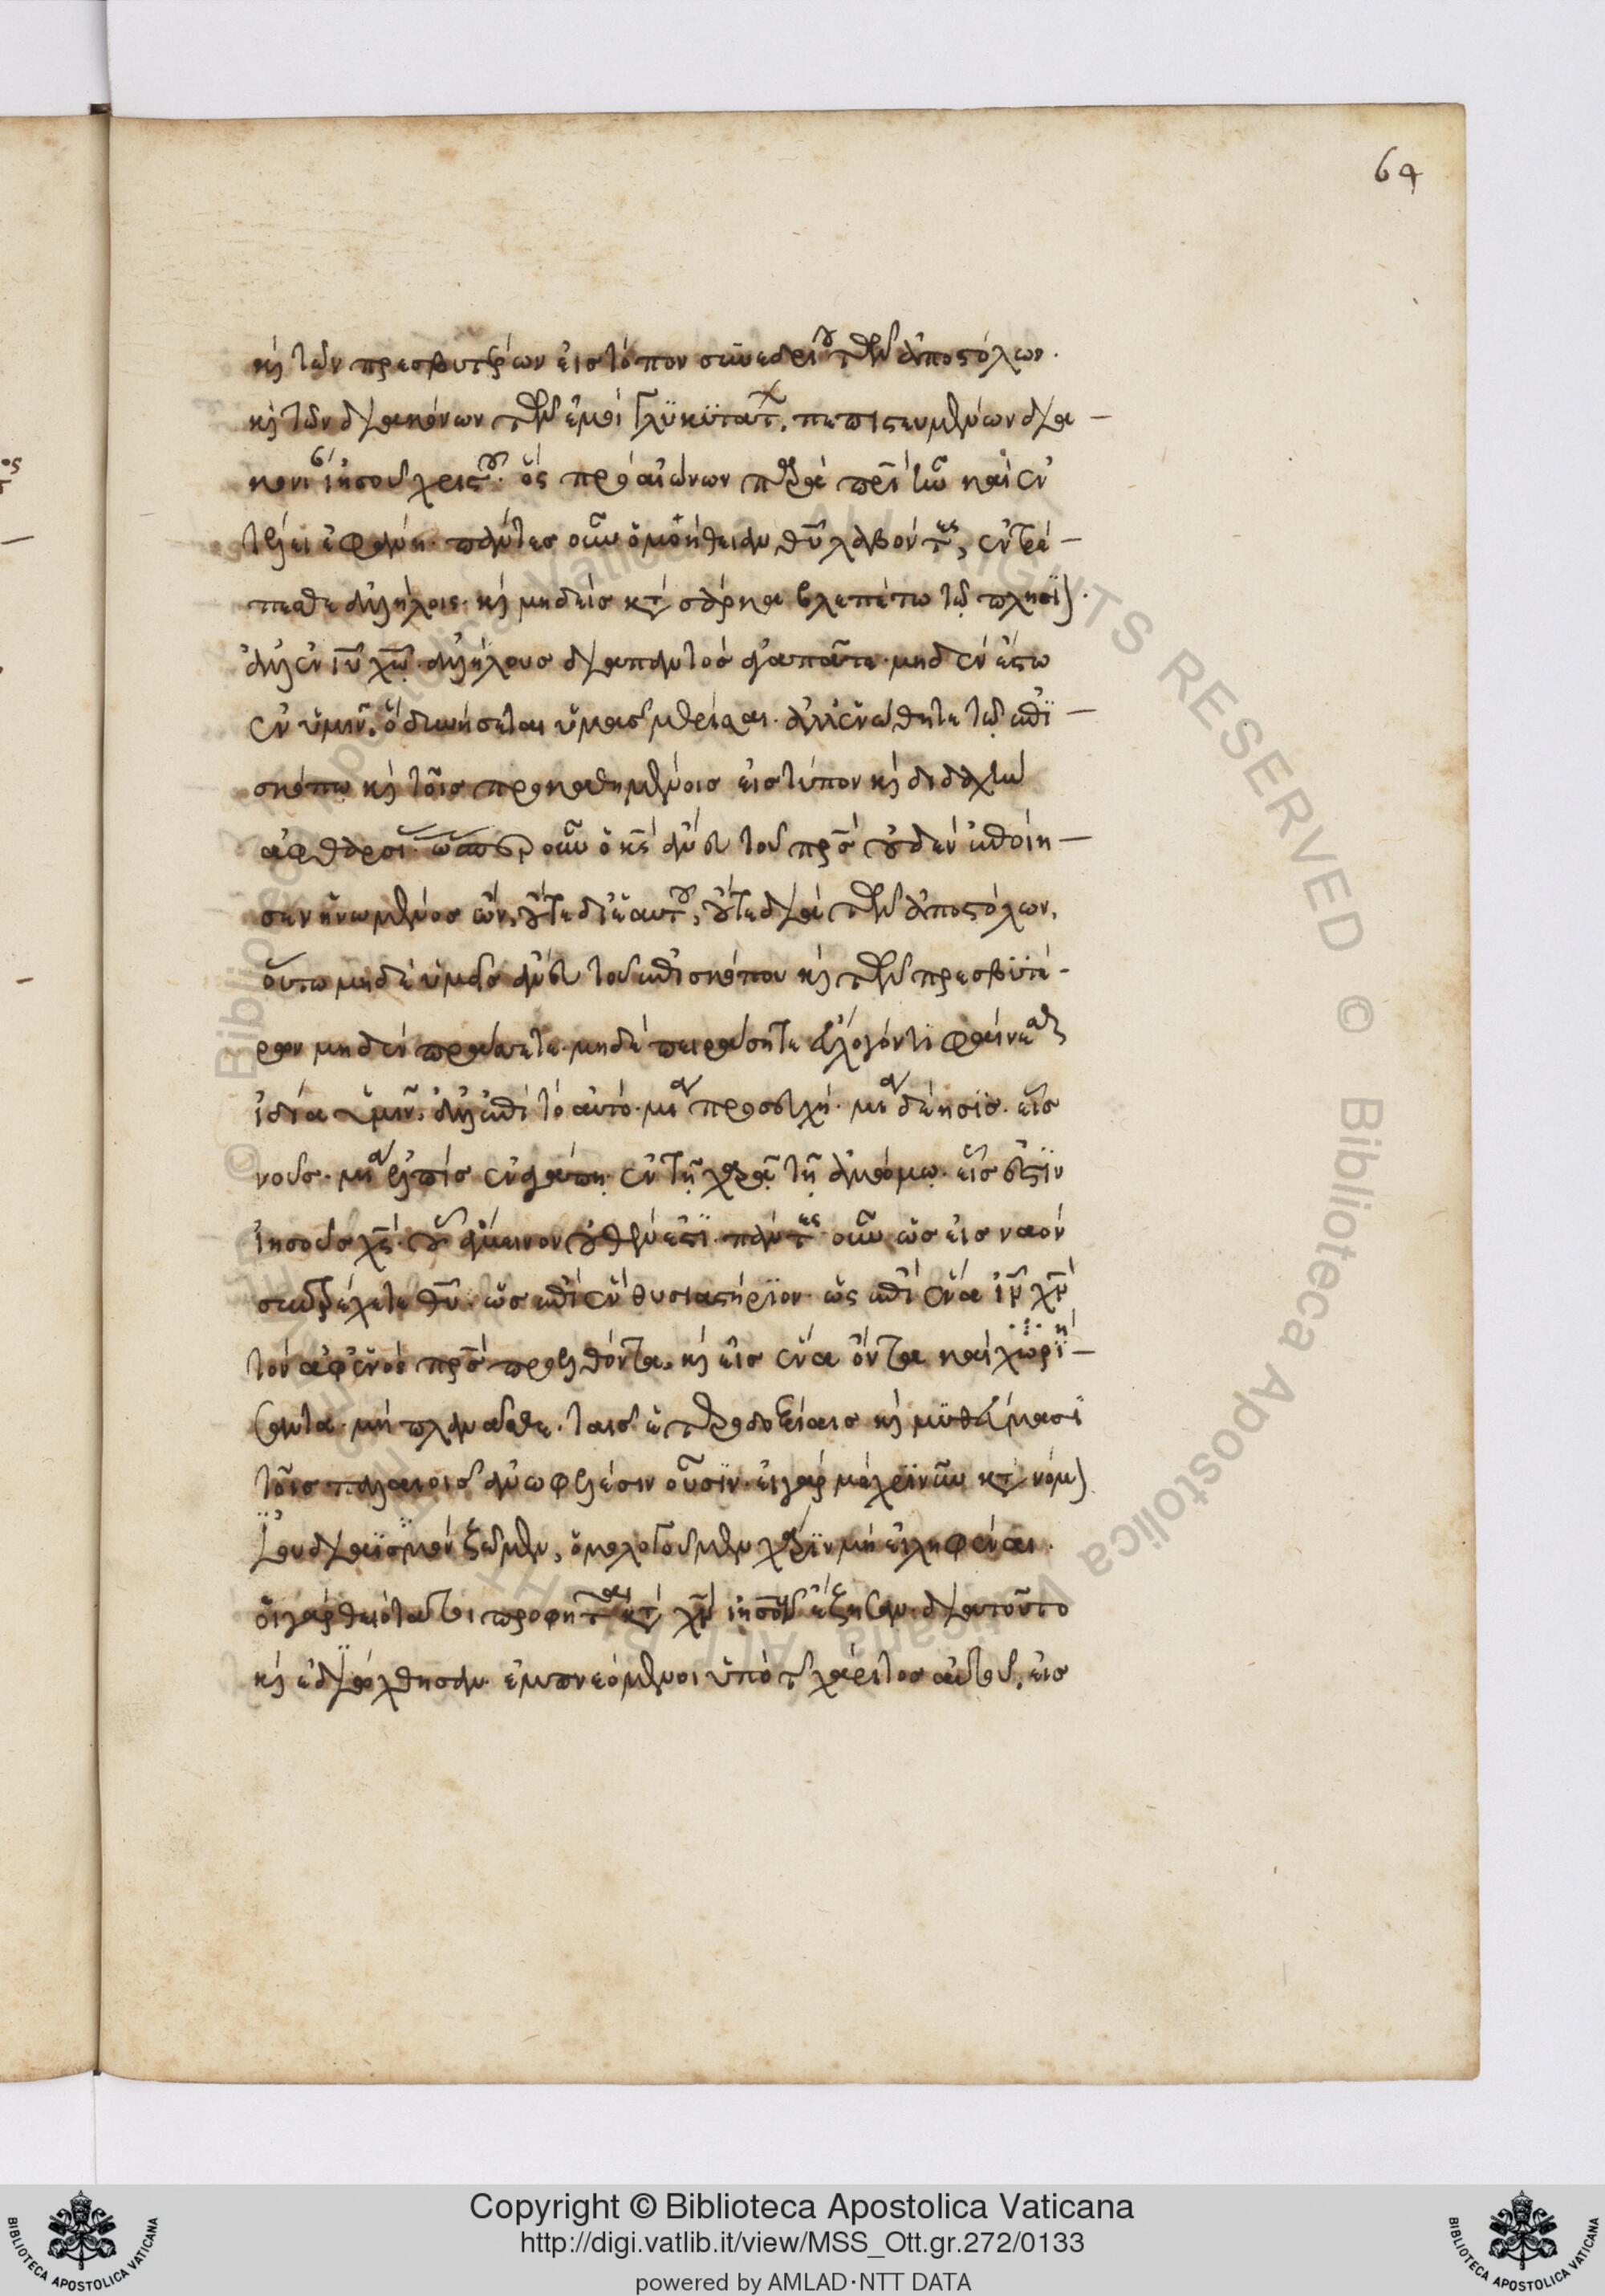 64
καὶ τῶν πρεσβυτέρων εἰς τόπον συνεδρίου τῶν ἀποστόλων.
καὶ τῶν διακόνων τῶν ἐμοὶ γλυκυτάτ. πεπιστευμένων δια
κονί ἰησοῦ χριστοῦ. ὃς πρὸ αἰώνων παρὰ πρὶ ἦν καὶ ἐν
τέλει ἐφάνη. πάντες οὖν ὁμοήθειαν θυ λαβόντες, ἐντρέ
πεσθε ἀλλήλοις. καὶ μηδεὶς κατὰ σάρκα βλεπέτω τῷ πλησίον.
ἀλλ' ἐν ιυ χω. ἀλλήλους διαπαντὸς ἀγαπᾶτε. μηδὲν ἔστω
ἐν ὑμῖν, ὃ δυνήσεται ὑμᾶς μερίσαι. ἀλλ' ἑνώθητε τῷ ἐπι
σκόπῳ καὶ τοῖς προκαθημένοις εἰς τύπον καὶ διδαχὴν
ἀφθαρσί. ὥσπερ οὖν ὁ κς ἄνευ τοῦ πρς οὐδὲν ἐποίη
σεν ἡνωμένος ὤν, οὔτε δι' ἑαυτοῦ, οὔτε διὰ τῶν ἀποστόλων,
οὕτω μηδὲ ὑμεῖς ἄνευ τοῦ ἐπισκόπου καὶ τῶν πρεσβυτέ
ρων μηδὲν πράσσετε. μηδὲ πειράσητε εὔλογόν τι φαίνεσθαι
ἰδία ὑμῖν. ἀλλ' ἐπὶ τὸ αὐτὸ. μία προσευχή. μία δέησις. εἷς
νοῦς. μία ἐλπὶς ἐν ἀγάπῃ. ἐν τῇ χαρᾷ τῇ ἀμώμῳ. εἷς ἐστὶν
ἰησοῦς χς. οὗ ἄμεινον οὐθέν ἐστι. πάντες οὖν ὡς εἰς ναὸν
συντρέχετε θυ. ὡς ἐπὶ ἓν θυσιαστήριον. ὡς ἐπὶ ἕνα ιν χν
τὸν ἀφ' ἑνὸς πρς προελθόντα. καὶ εἰς ἕνα ὄντα καὶ χωρή
σαντα. μὴ πλανᾶσθε. ταῖς ἑτεροδοξίαις καὶ μυθεύμασι
τοῖς παλαιοῖς ἀνωφελέσιν οὖσιν. εἰ γὰρ μέχρι νῦν κατὰ νόμον
ἰουδαϊσμὸν ζῶμεν, ὁμολογοῦμεν χάριν μὴ εἰληφέναι.
οἱ γὰρ θειότατοι προφῆται κατὰ χν ἰησοῦν ἔζησαν. διὰ τοῦτο
καὶ ἐδιώχθησαν. ἐμπνεόμενοι ὑπὸ τῆς χάριτος αὐτοῦ, εἰς
Copyright © Biblioteca Apostolica Vaticana
http://digi.vatlib.it/view/MSS_Ott.gr.272/0133
powered by AMLAD·NTT DATA